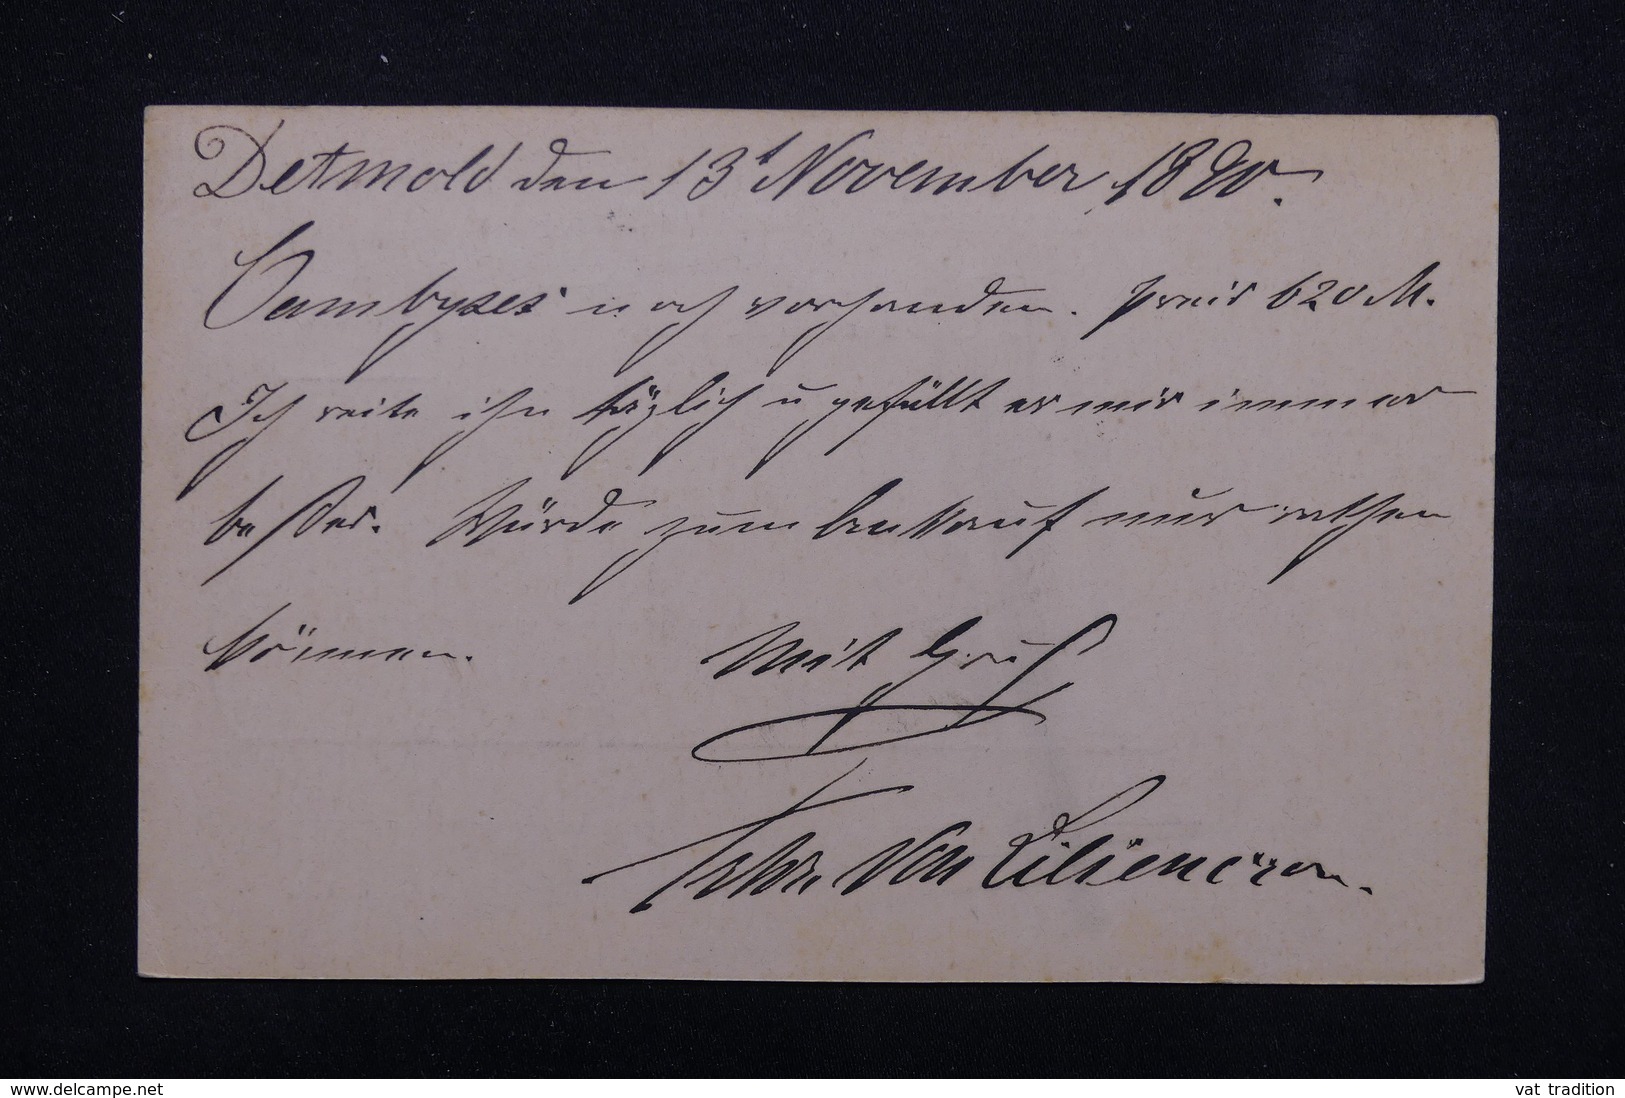 Detmold den 13t November 1890.
Cambyses noch vorhanden. Preis 620 M.
Ich reite ihn täglich u gefällt er mir immer
besser. Würde zum Ankauf nur rathen
können. Mit Gruß
Frhr. von Liliencron.
www.delcampe.net
vat tradition